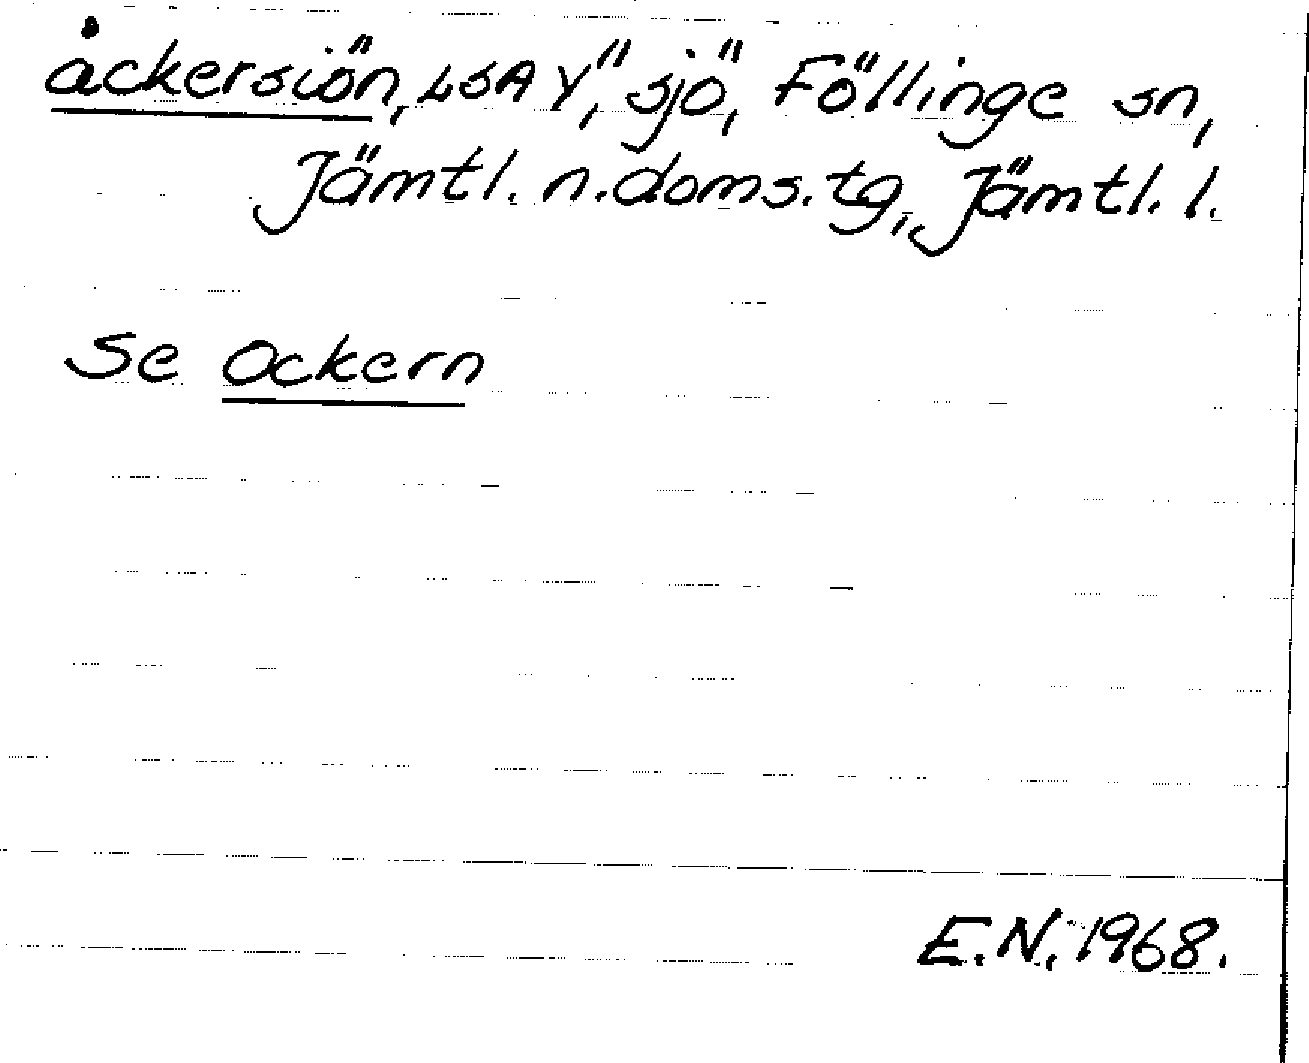 åckersiön, LSA Y", sjö, Föllinge sn,
Jämtl. n.doms.tg, Jämtl. l.
Se Ockern
E.N. 1968.